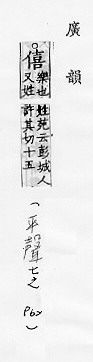 廣韻
僖樂也又姓姓苑云彭城人許其切十五
（平聲七之 P62）